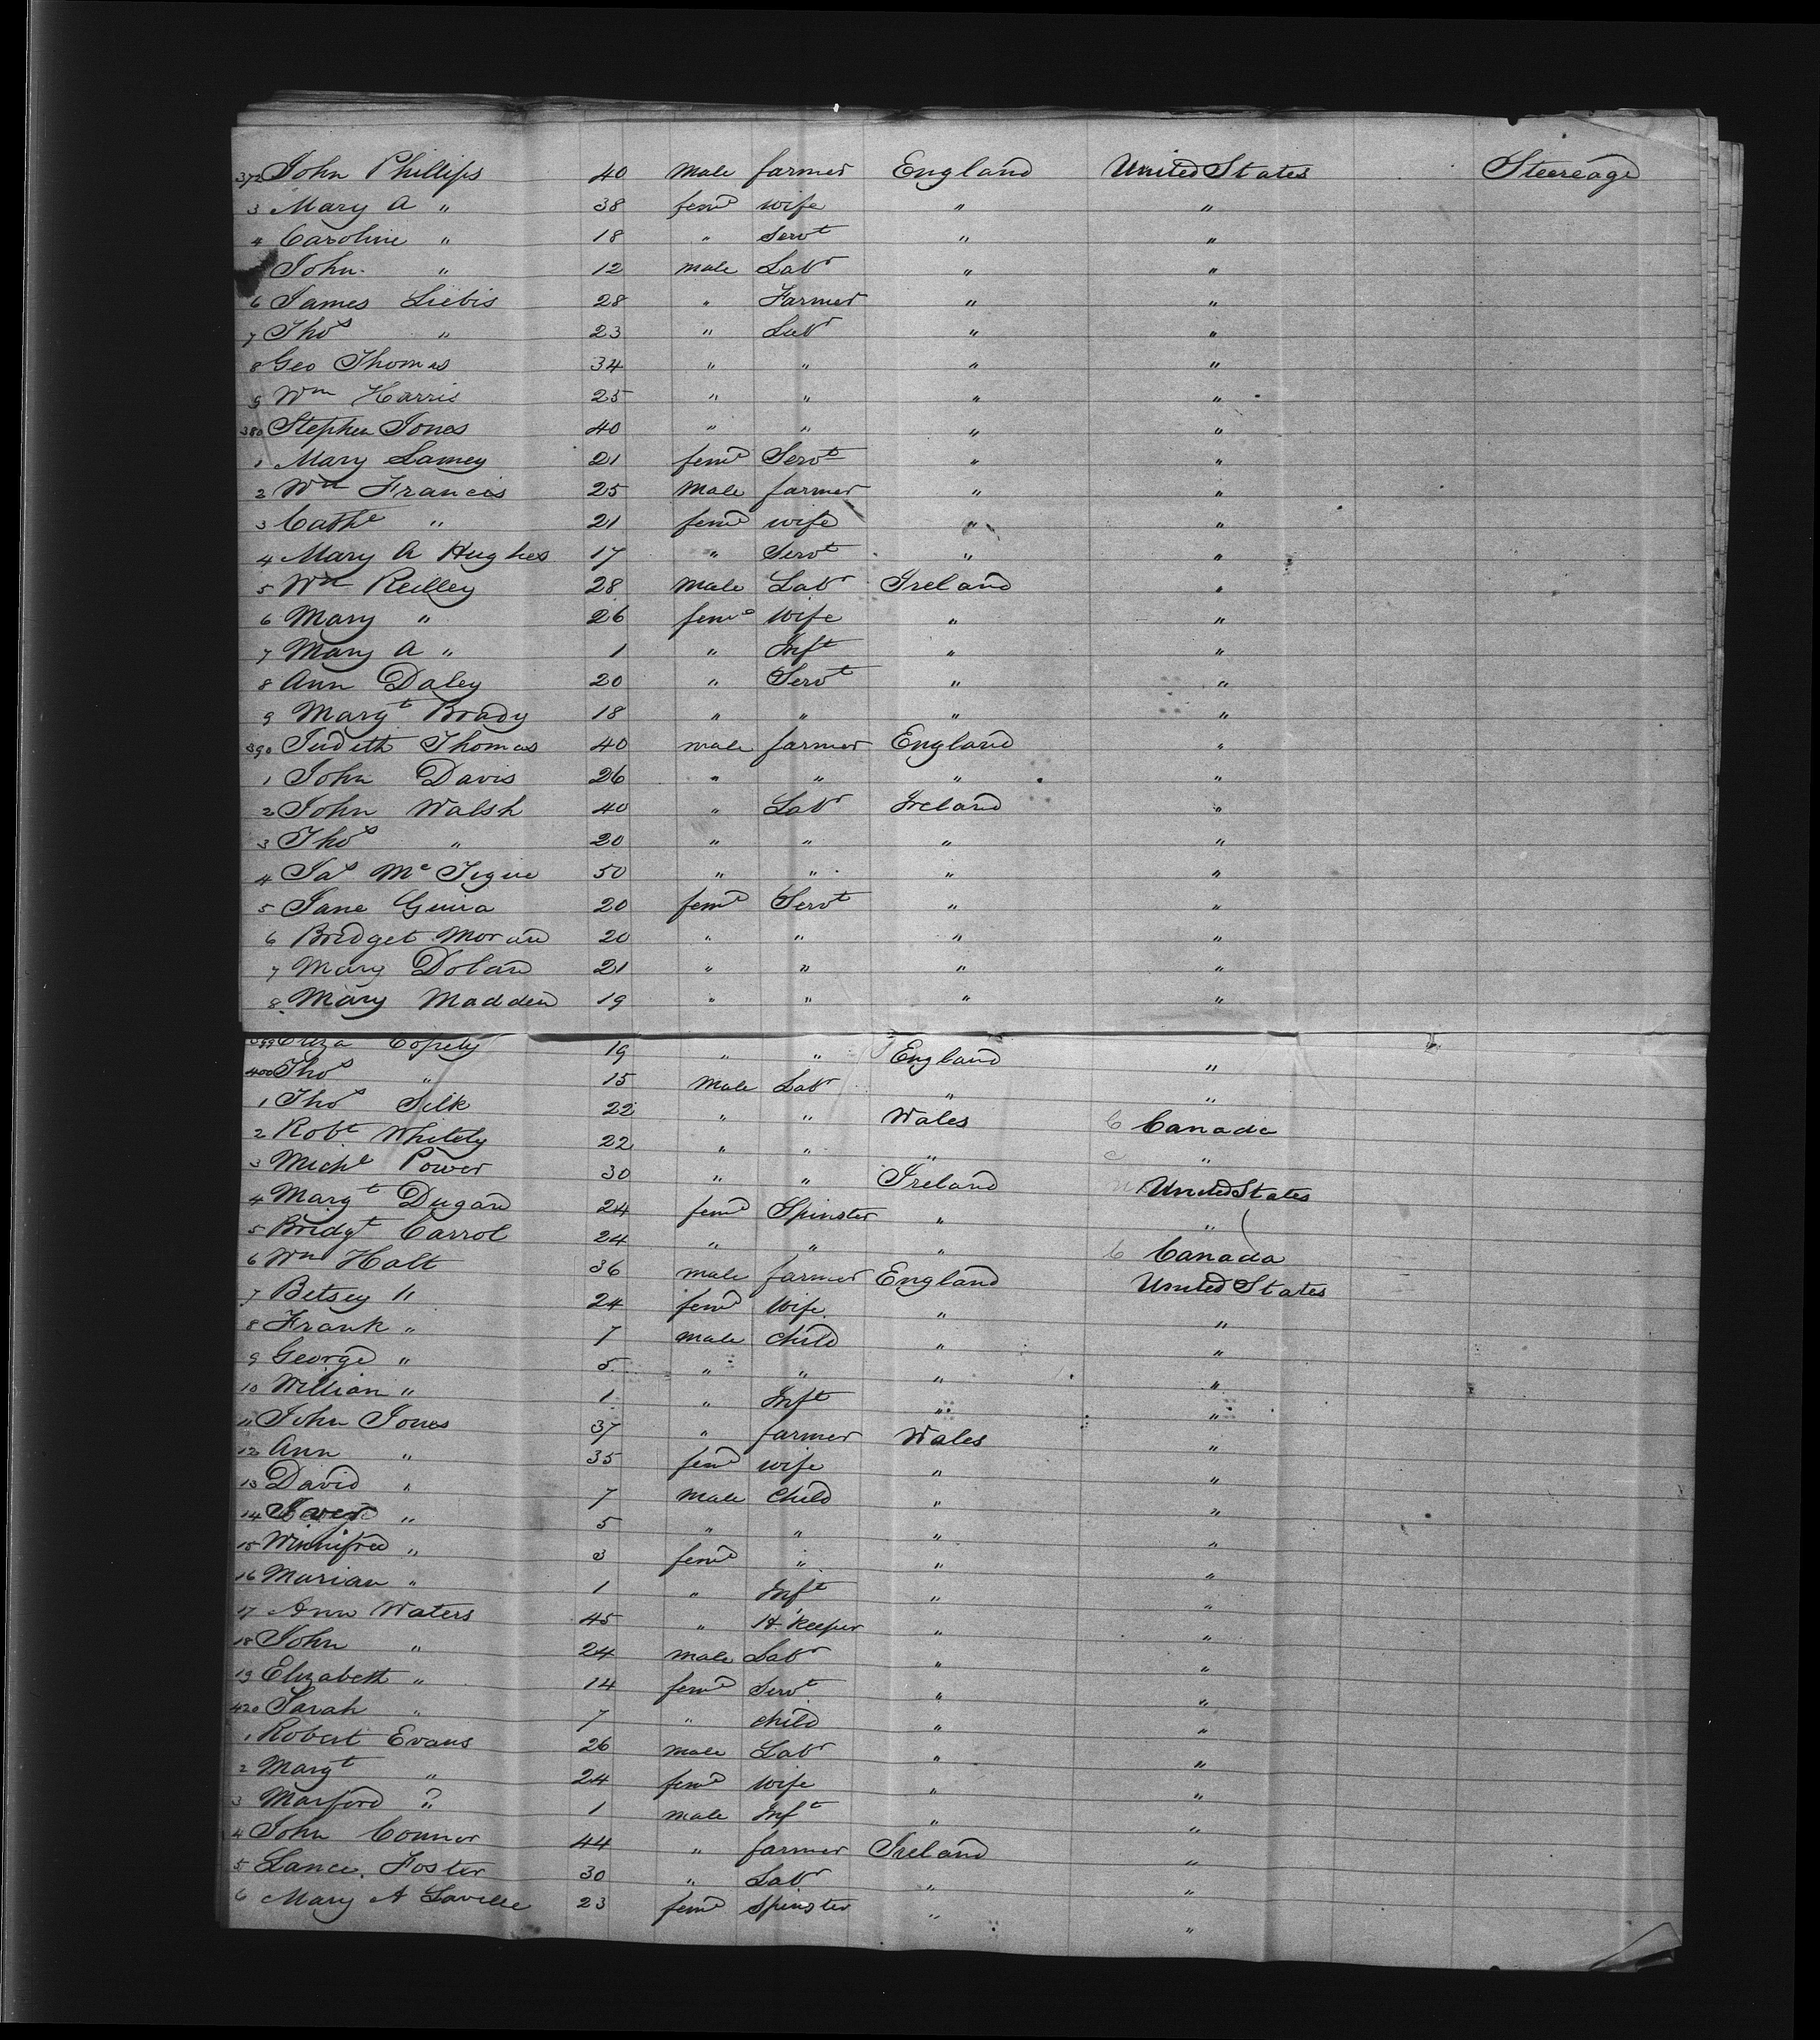 372 John Phillips 40 male farmer England United States Steereage
3 Mary A " 38 fem wife " "
4 Caroline " 18 " Servt " "
John " 12 male Labr " "
6 James Liebis 28 " Farmer " "
7 Thos " 23 " Labr " "
8 Geo Thomas 34 " " " "
9 Wm Harris 25 " " " "
380 Stephen Jones 40 " " " "
1 Mary Lamey 21 fem Servt " "
2 Wm Francis 25 male farmer " "
3 Cathe " 21 fem wife " "
4 Mary A Hughes 17 " Servt " "
5 Wm Reilley 28 male Labr Ireland "
6 Mary " 26 fem wife " "
7 Mary A " 1 " Inft " "
8 Ann Daley 20 " Servt " "
9 Margt Brady 18 " " " "
390 Judith Thomas 40 male farmer England "
1 John Davis 26 " " " "
2 John Walsh 40 " Labr Ireland "
3 Thos " 20 " " " "
4 Jas McTigue 50 " " " "
5 Jane 20 fem Servt " "
6 Bridget Moran 20 " " " "
7 Mary Dolan 21 " " " "
8 Mary Madden 19 " " " "
399 Eliza Copely 19 " " England "
400 Thos " 15 male Labr " "
1 Thos Silk 22 " " Wales C Canada
2 Robt Whitely 22 " " " C "
3 Michl Power 30 " " Ireland United States
4 Margt Dugan 24 fem Spinster " "
5 Bridgt Carrol 24 " " " C Canada
6 Wm Halt 36 male farmer England United States
7 Betsey " 24 fem wife " "
8 Frank " 7 male child " "
9 George " 5 " " " "
10 Willian " 1 " Inft " "
11 John Jones 37 " farmer Wales "
12 Ann " 35 fem wife " "
13 David " 7 male child " "
14 " 5 " " " "
15 Winnifred " 3 fem " " "
16 Marian " 1 " Inft " "
17 Ann Waters 45 " H Keeper " "
18 John " 24 male Labr " "
19 Elizabeth " 14 fem Servt " "
420 Sarah " 7 " child " "
1 Robert Evans 26 male Labr " "
2 Margt " 24 fem wife " "
3 Marford ? " 1 male Inft " "
4 John Connor 44 " farmer Ireland "
5 Lance. Foster 30 " Labr " "
6 Mary A Lavelle 23 fem spinster " "